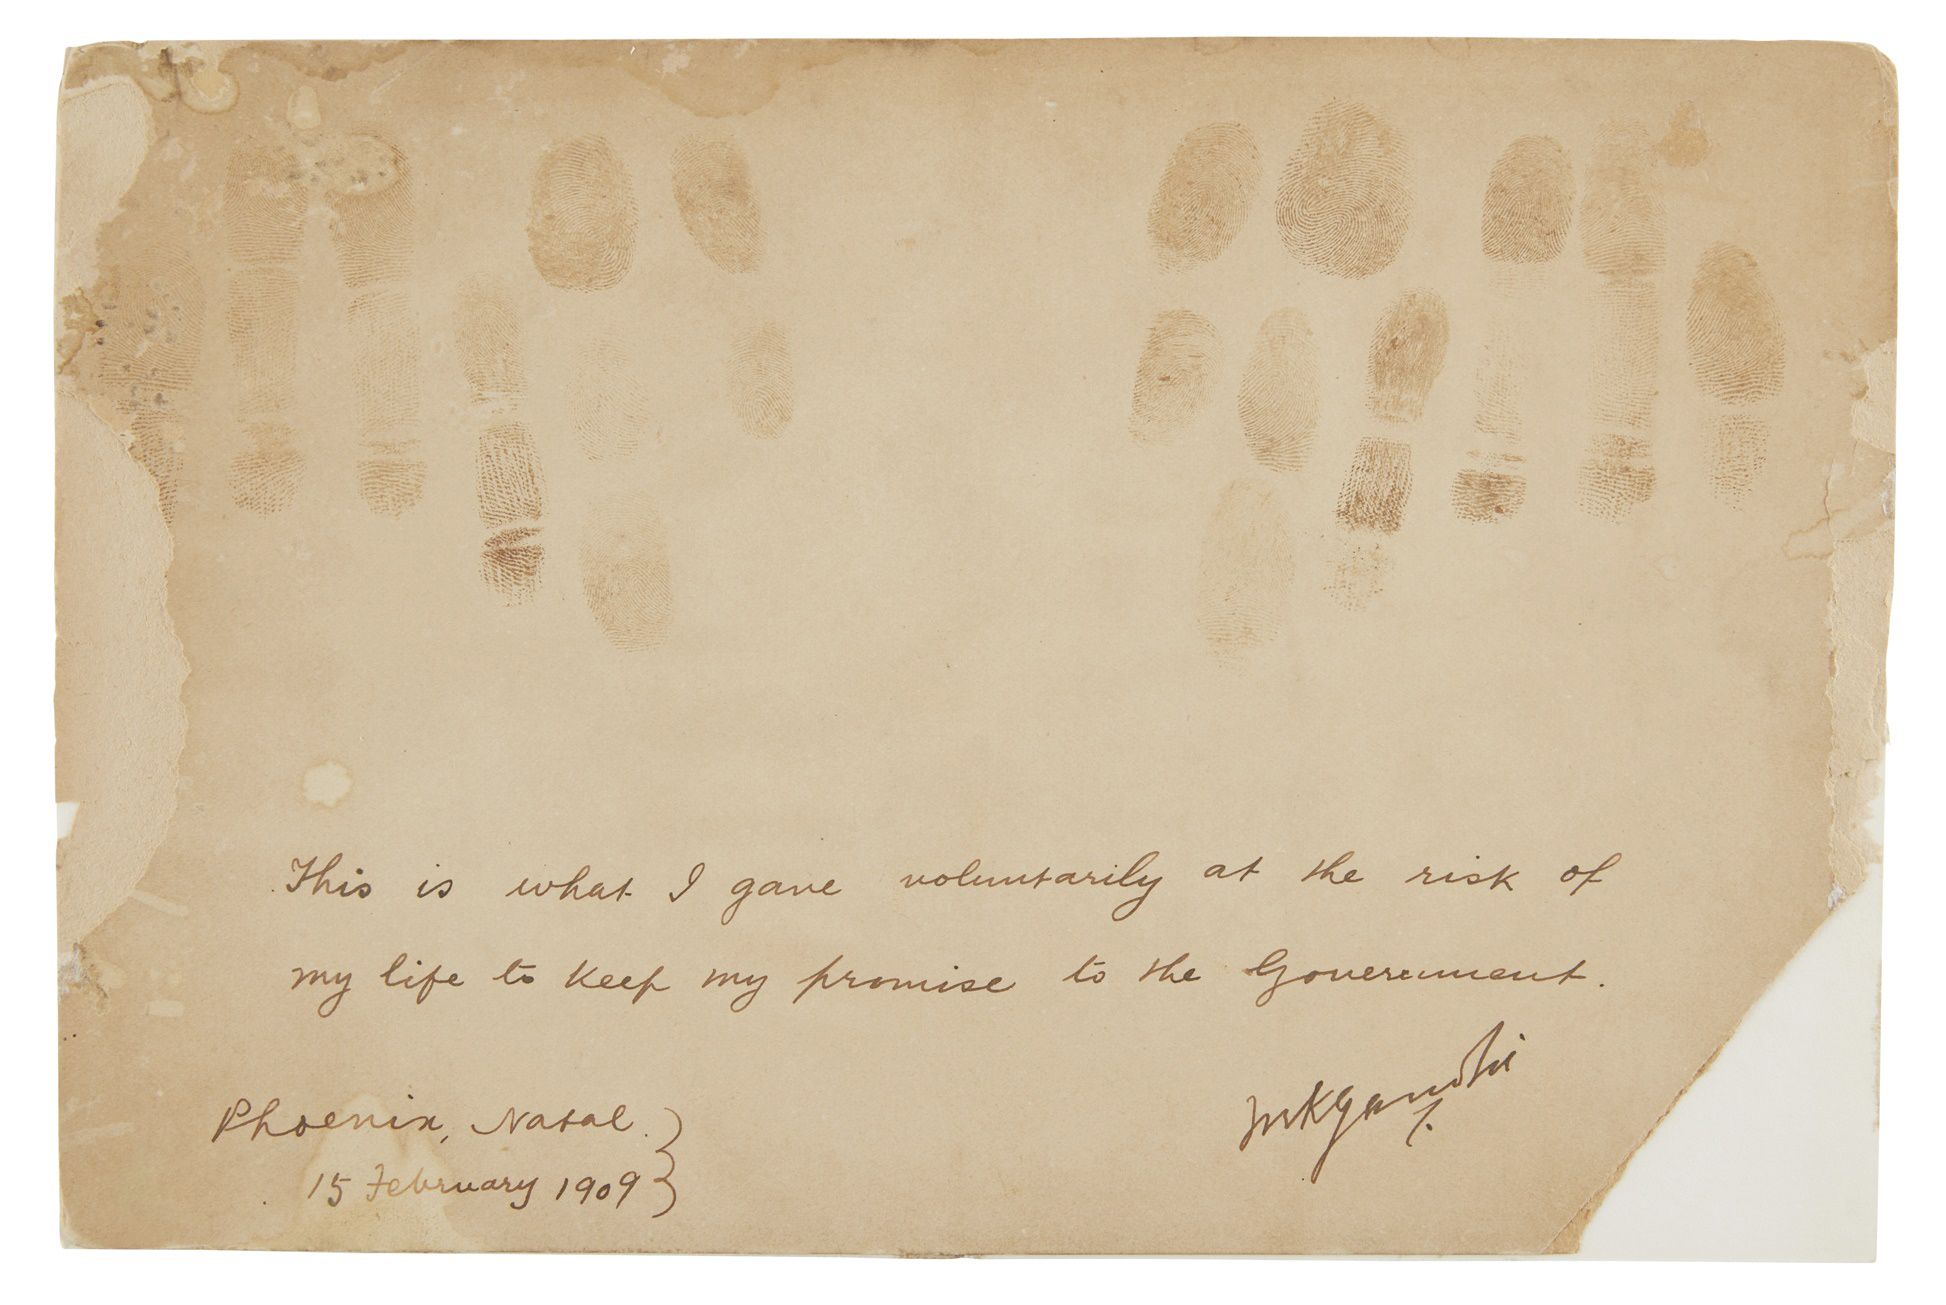 This is what I gave voluntarily at the risk of
my life to keep my promise to the Government.
MKGandhi
Phoenix, Natal.
15 February 1909